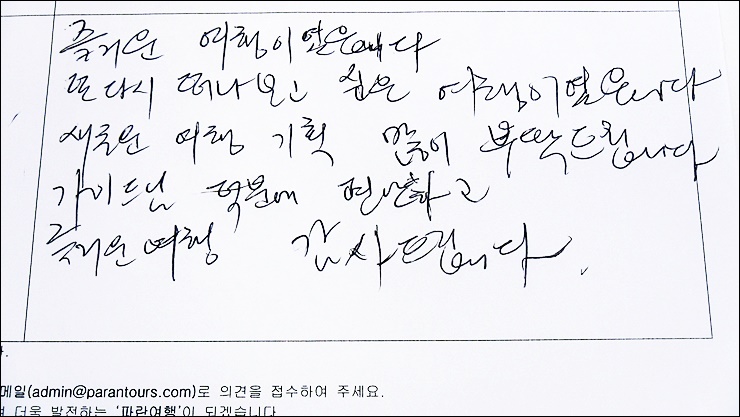 즐거운 여행이였읍니다
또다시 떠나보고 싶은 여행이였읍니다
새로운 여행 기획 많이 부탁드립니다
가이드님 덕분에 편안하고
즐거운 여행 감사드립니다.
메일(admin@parantours.com)로 의견을 접수하여 주세요.
더욱 발전하는 '파란여행'이 되겠습니다